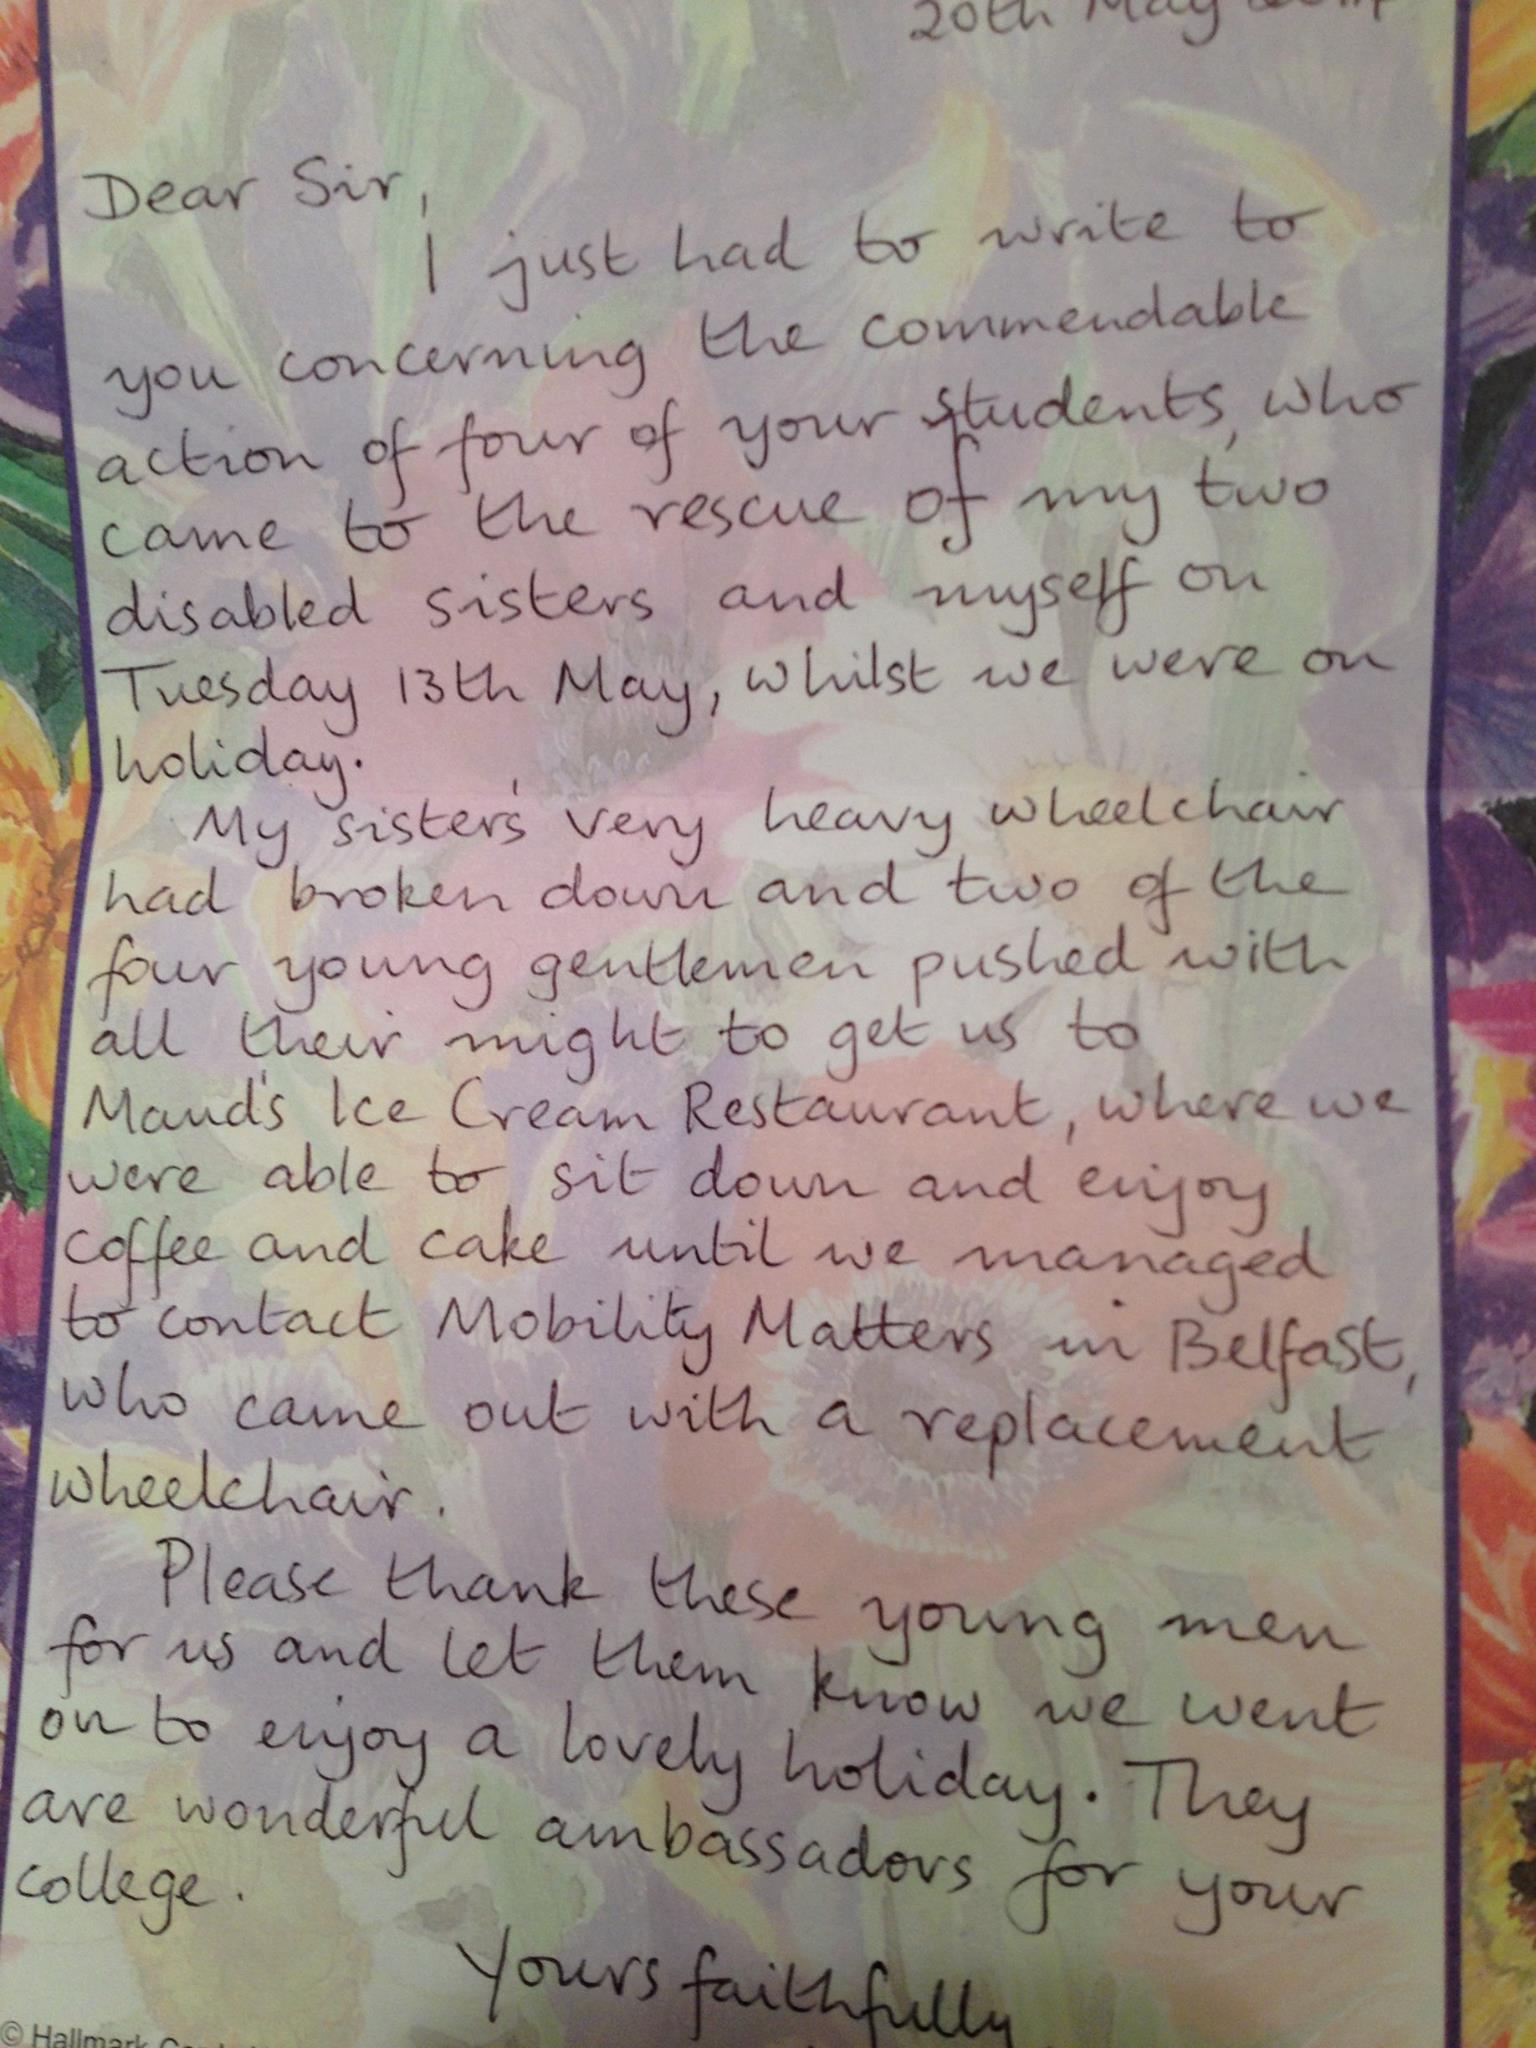 20th May
Dear Sir,
I just had to write to
you concerning the commendable
action of four of your students, who
came to the rescue of my two
disabled sisters and myself on
Tuesday 13th May, whilst we were on
holiday.
My sister's very heavy wheelchair
had broken down and two of the
four young gentlemen pushed with
all their might to get us to
Maud's Ice Cream Restaurant, where we
were able to sit down and enjoy
coffee and cake until we managed
to contact Mobility Matters in Belfast,
who came out with a replacement
wheelchair.
Please thank these young men
for us and let them know we went
on to enjoy a lovely holiday. They
are wonderful ambassadors for your
college.
Yours faithfully
© Hallmark